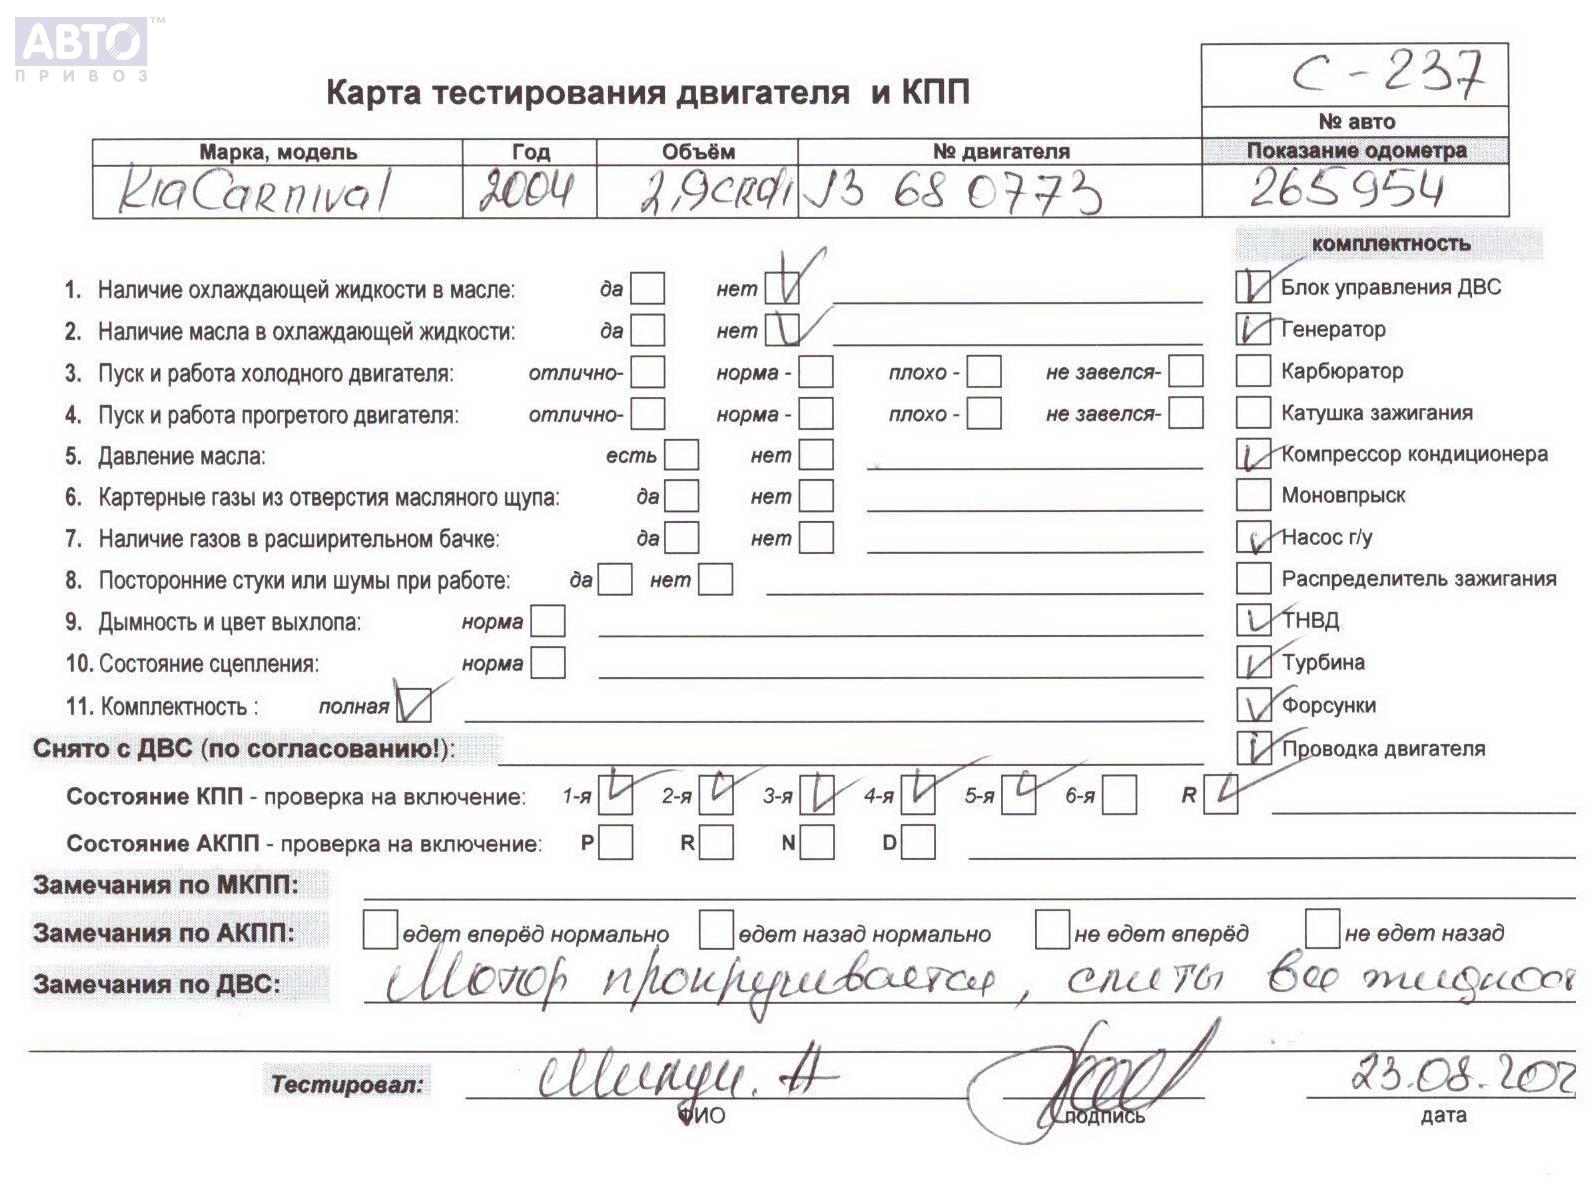 АВТО™
ПРИВОЗ
С-237
Карта тестирования двигателя и КПП
№ авто
Марка, модель Год Объём № двигателя Показание одометра
Kia Carnival 2004 2,9CRDi J3 680773 265954
комплектность
1. Наличие охлаждающей жидкости в масле: да нет Блок управления ДВС
2. Наличие масла в охлаждающей жидкости: да нет Генератор
3. Пуск и работа холодного двигателя: отлично- норма - плохо - не завелся- Карбюратор
4. Пуск и работа прогретого двигателя: отлично- норма - плохо - не завелся- Катушка зажигания
5. Давление масла: есть нет Компрессор кондиционера
6. Картерные газы из отверстия масляного щупа: да нет Моновпрыск
7. Наличие газов в расширительном бачке: да нет Насос г/у
8. Посторонние стуки или шумы при работе: да нет Распределитель зажигания
9. Дымность и цвет выхлопа: норма ТНВД
10. Состояние сцепления: норма Турбина
11. Комплектность : полная Форсунки
Снято с ДВС (по согласованию!): Проводка двигателя
Состояние КПП - проверка на включение: 1-я 2-я 3-я 4-я 5-я 6-я R
Состояние АКПП - проверка на включение: P R N D
Замечания по МКПП:
Замечания по АКПП: едет вперёд нормально едет назад нормально не едет вперёд не едет назад
Замечания по ДВС: Мотор прокручивается, слиты все жидкост
Тестировал: 23.08.202
ФИО подпись дата